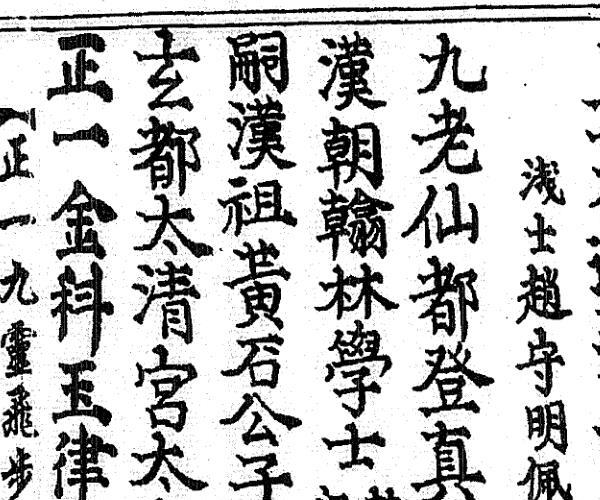 淺士趙守明佩
九老仙都登真
漢朝翰林學士
嗣漢祖黃石公子
玄都太清宮太
正一金科玉律
正一九靈飛步